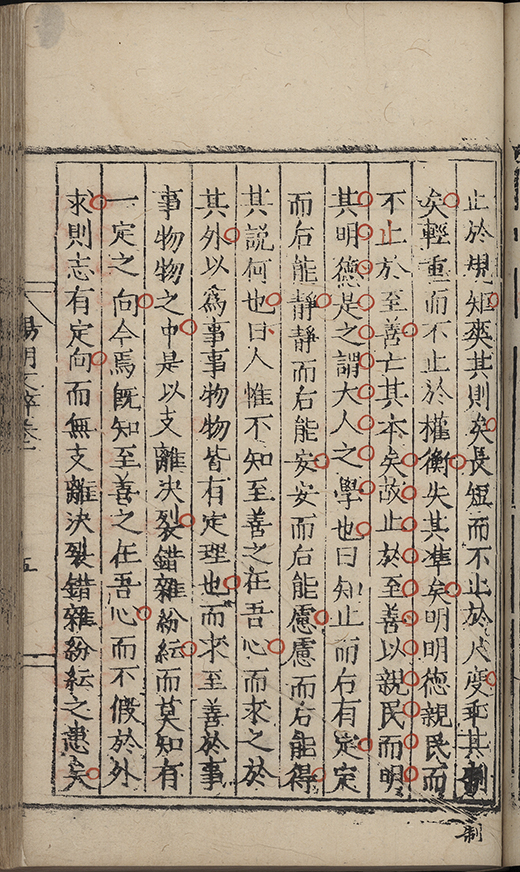 止於規矩爽其則矣長短而不止於尺度乖其
制
矣輕重而不止於權衡失其準矣明明德親民而
不止於至善亡其本矣故止於至善以親民而明
其明德是之謂大人之學也曰知止而后有定定
而后能靜靜而后能安安而后能慮慮而后能得
其說何也曰人惟不知至善之在吾心而求之於
其外以爲事事物物皆有定理也而求至善於事
事物物之中是以支離决裂錯雜紛紜而莫知有
一定之向今焉既知至善之在吾心而不假於外
求則志有定向而無支離决裂錯雜紛紜之患矣
陽明文粹卷一
五